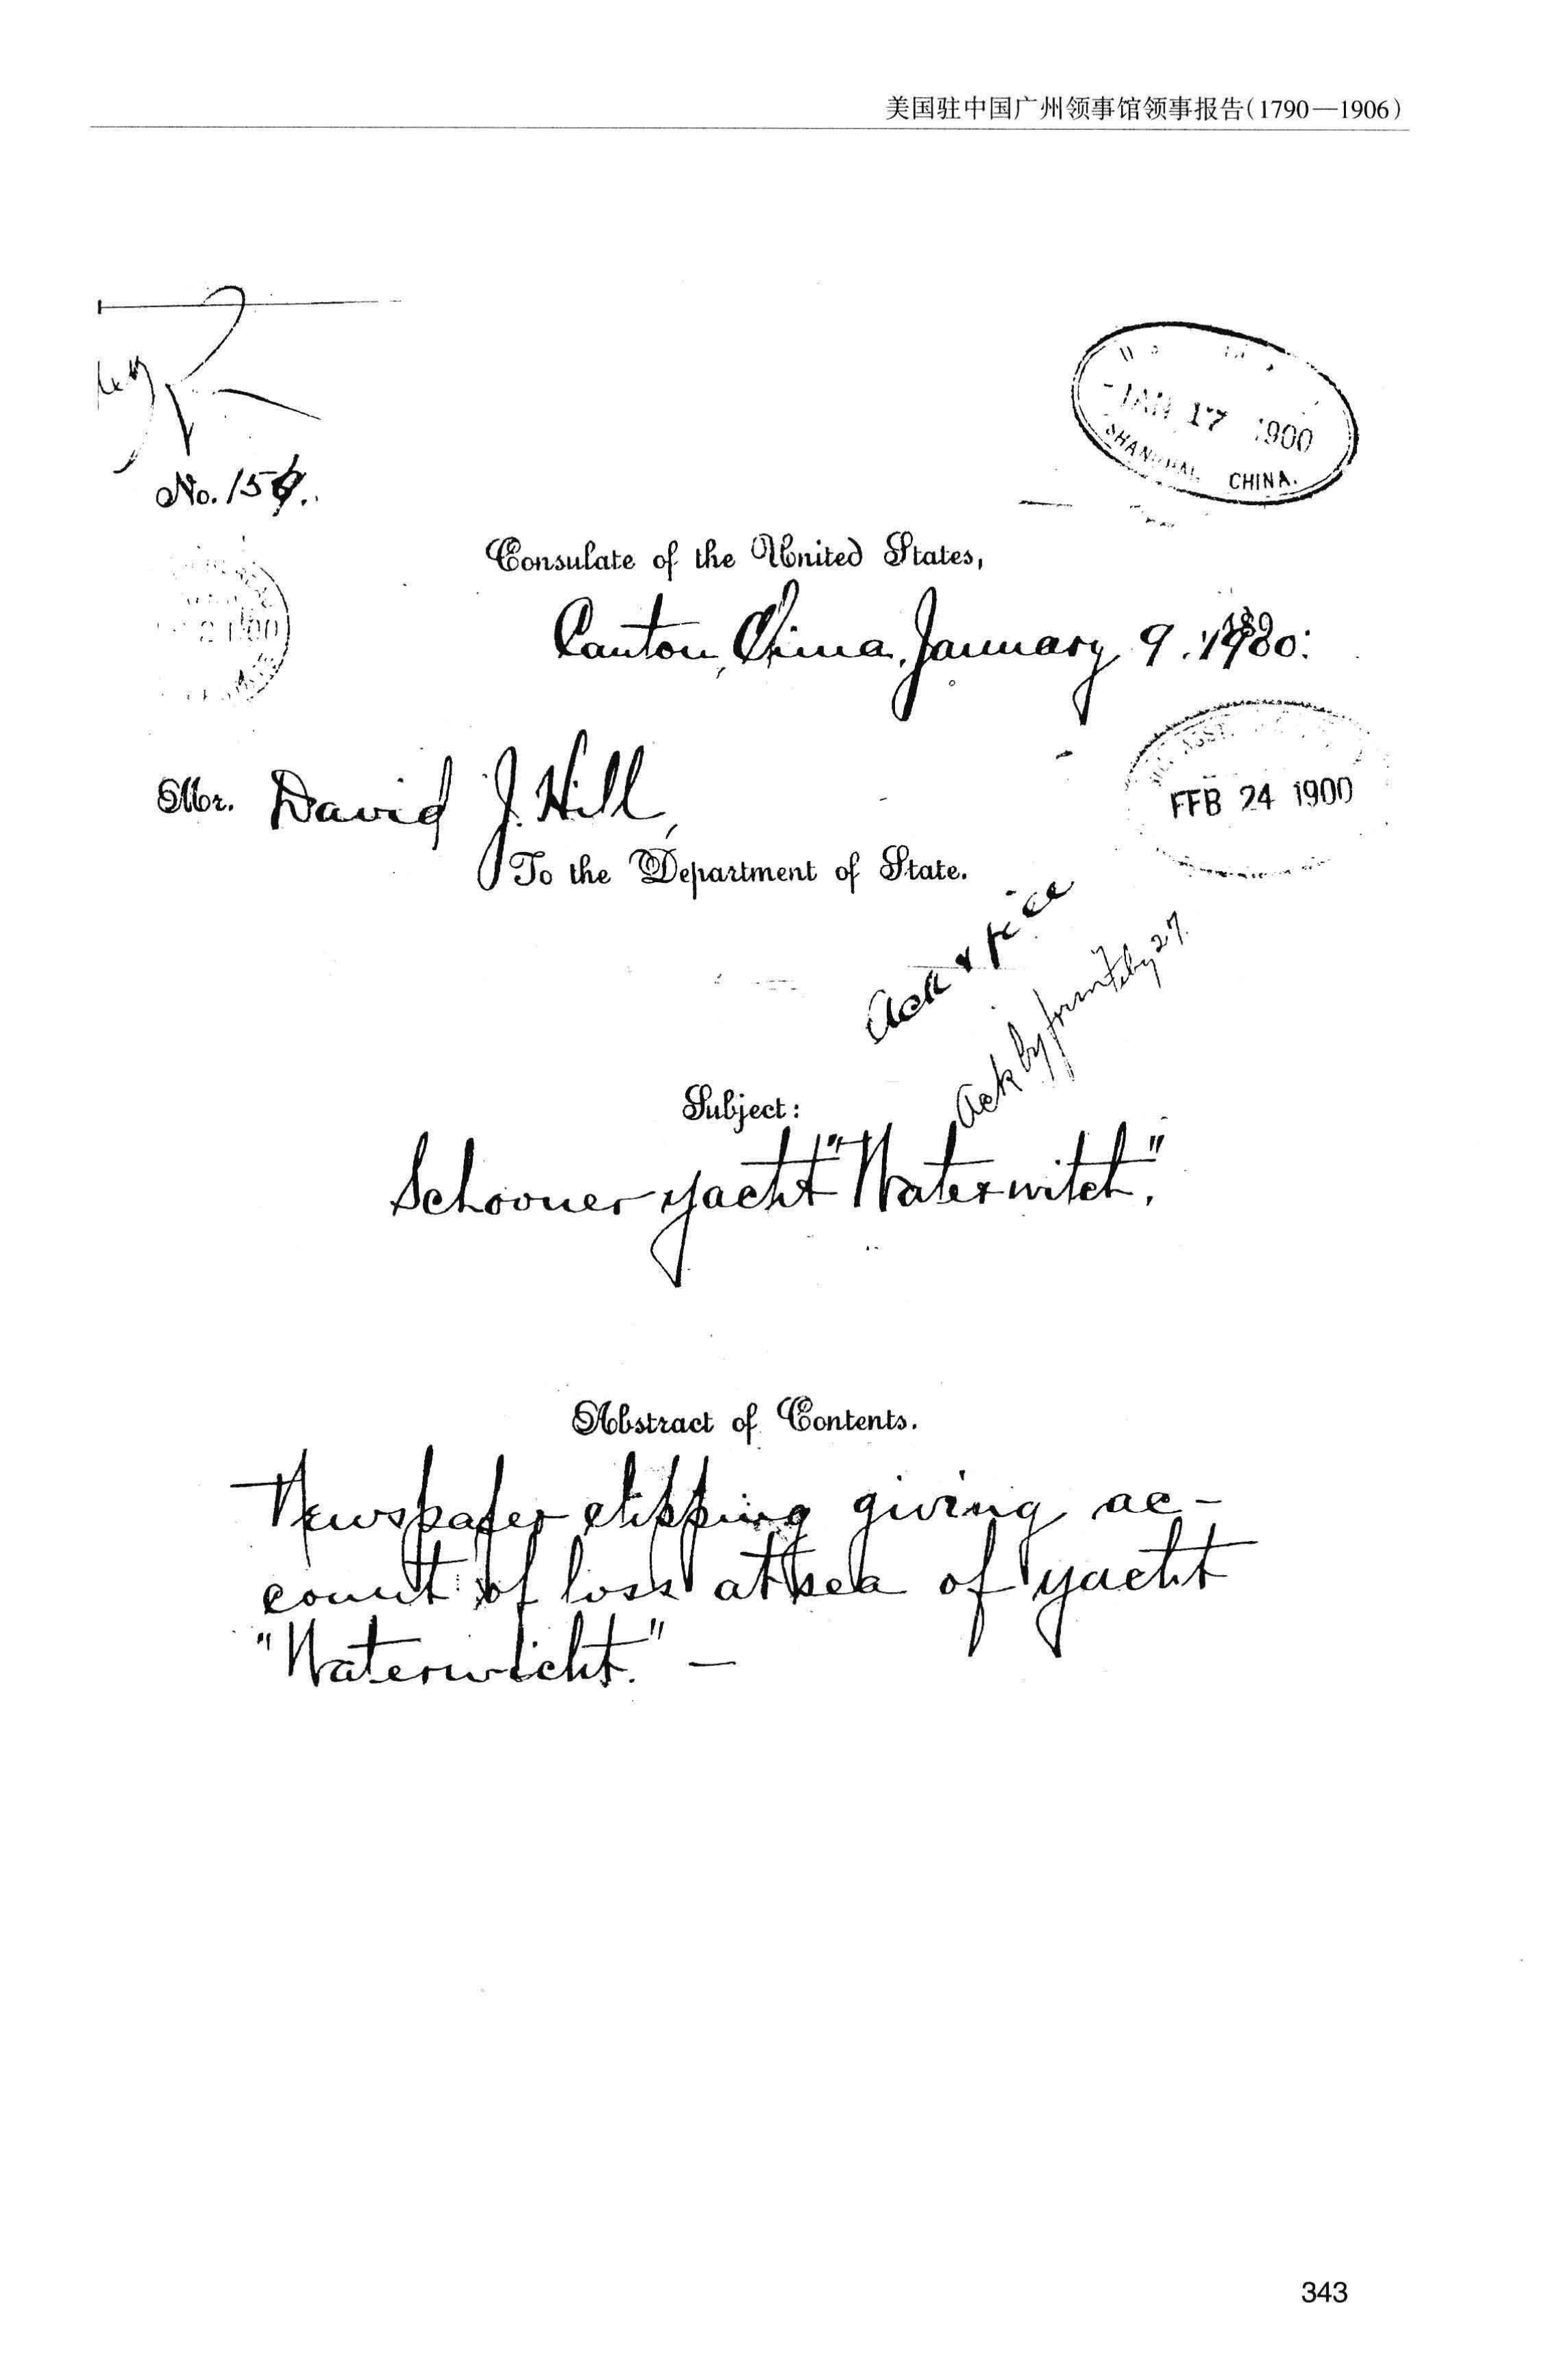 美国驻中国广州领事馆领事报告(1790—1906)
JAN 17 1900
SHANGHAI, CHINA.
No. 154.
Consulate of the United States,
Canton, China, January 9. 1900.
Mr. David J. Hill,
To the Department of State.
FEB 24 1900
Ack & file
Ack by form Feby 27.
Subject:
Schooner yacht "Waterwitch."
Abstract of Contents.
Newspaper clipping giving ac-
count of loss at sea of yacht
"Waterwicht." —
343